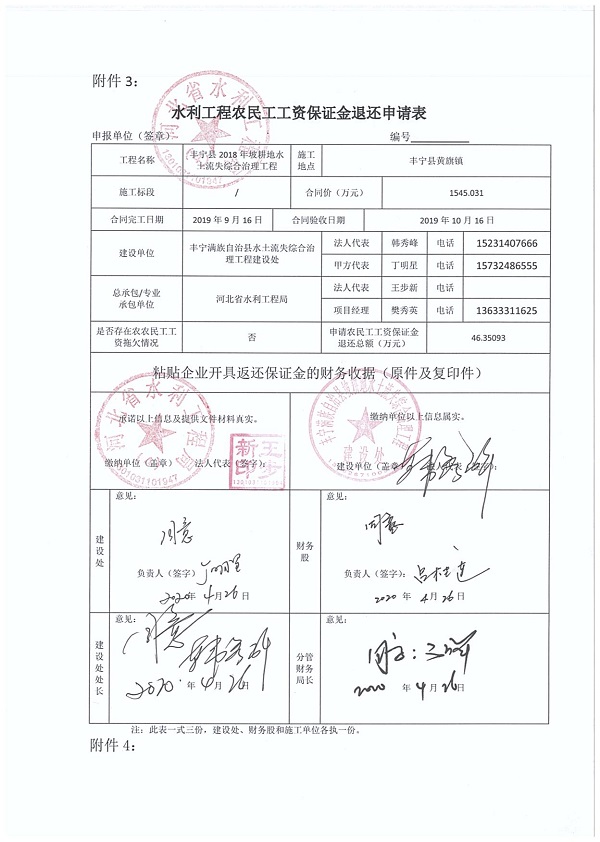 附件 3：
水利工程农民工工资保证金退还申请表
申报单位（签章） 编号
工程名称 丰宁县 2018 年坡耕地水土流失综合治理工程 施工地点 丰宁县黄旗镇
施工标段 / 合同价（万元） 1545.031
合同完工日期 2019 年 9 月 16 日 合同验收日期 2019 年 10 月 16 日
建设单位 丰宁满族自治县水土流失综合治理工程建设处 法人代表 韩秀峰 电话 15231407666
甲方代表 丁明星 电话 15732486555
总承包/专业承包单位 河北省水利工程局 法人代表 王步新 电话
项目经理 樊秀英 电话 13633311625
是否存在农农民工工资拖欠情况 否 申请农民工工资保证金退还总额（万元） 46.35093
粘贴企业开具返还保证金的财务收据（原件及复印件）
承诺以上信息及提供文件材料真实。 缴纳单位以上信息属实。
缴纳单位（盖章） 法人代表（签字）： 建设单位（盖章） 法人代表（签字）：
河北省水利工程局
1301031101947
王步新印
建设处
建设处 意见： 同意 财务股 意见： 同意
负责人（签字） 丁明星 负责人（签字）：
2020 年 4 月 26 日 2020 年 4 月 26 日
建设处处长 意见： 同意 韩秀峰 分管财务局长 意见： 同意：
2020 年 4 月 26 日 2020 年 4 月 26 日
注：此表一式三份，建设处、财务股和施工单位各执一份。
附件 4：